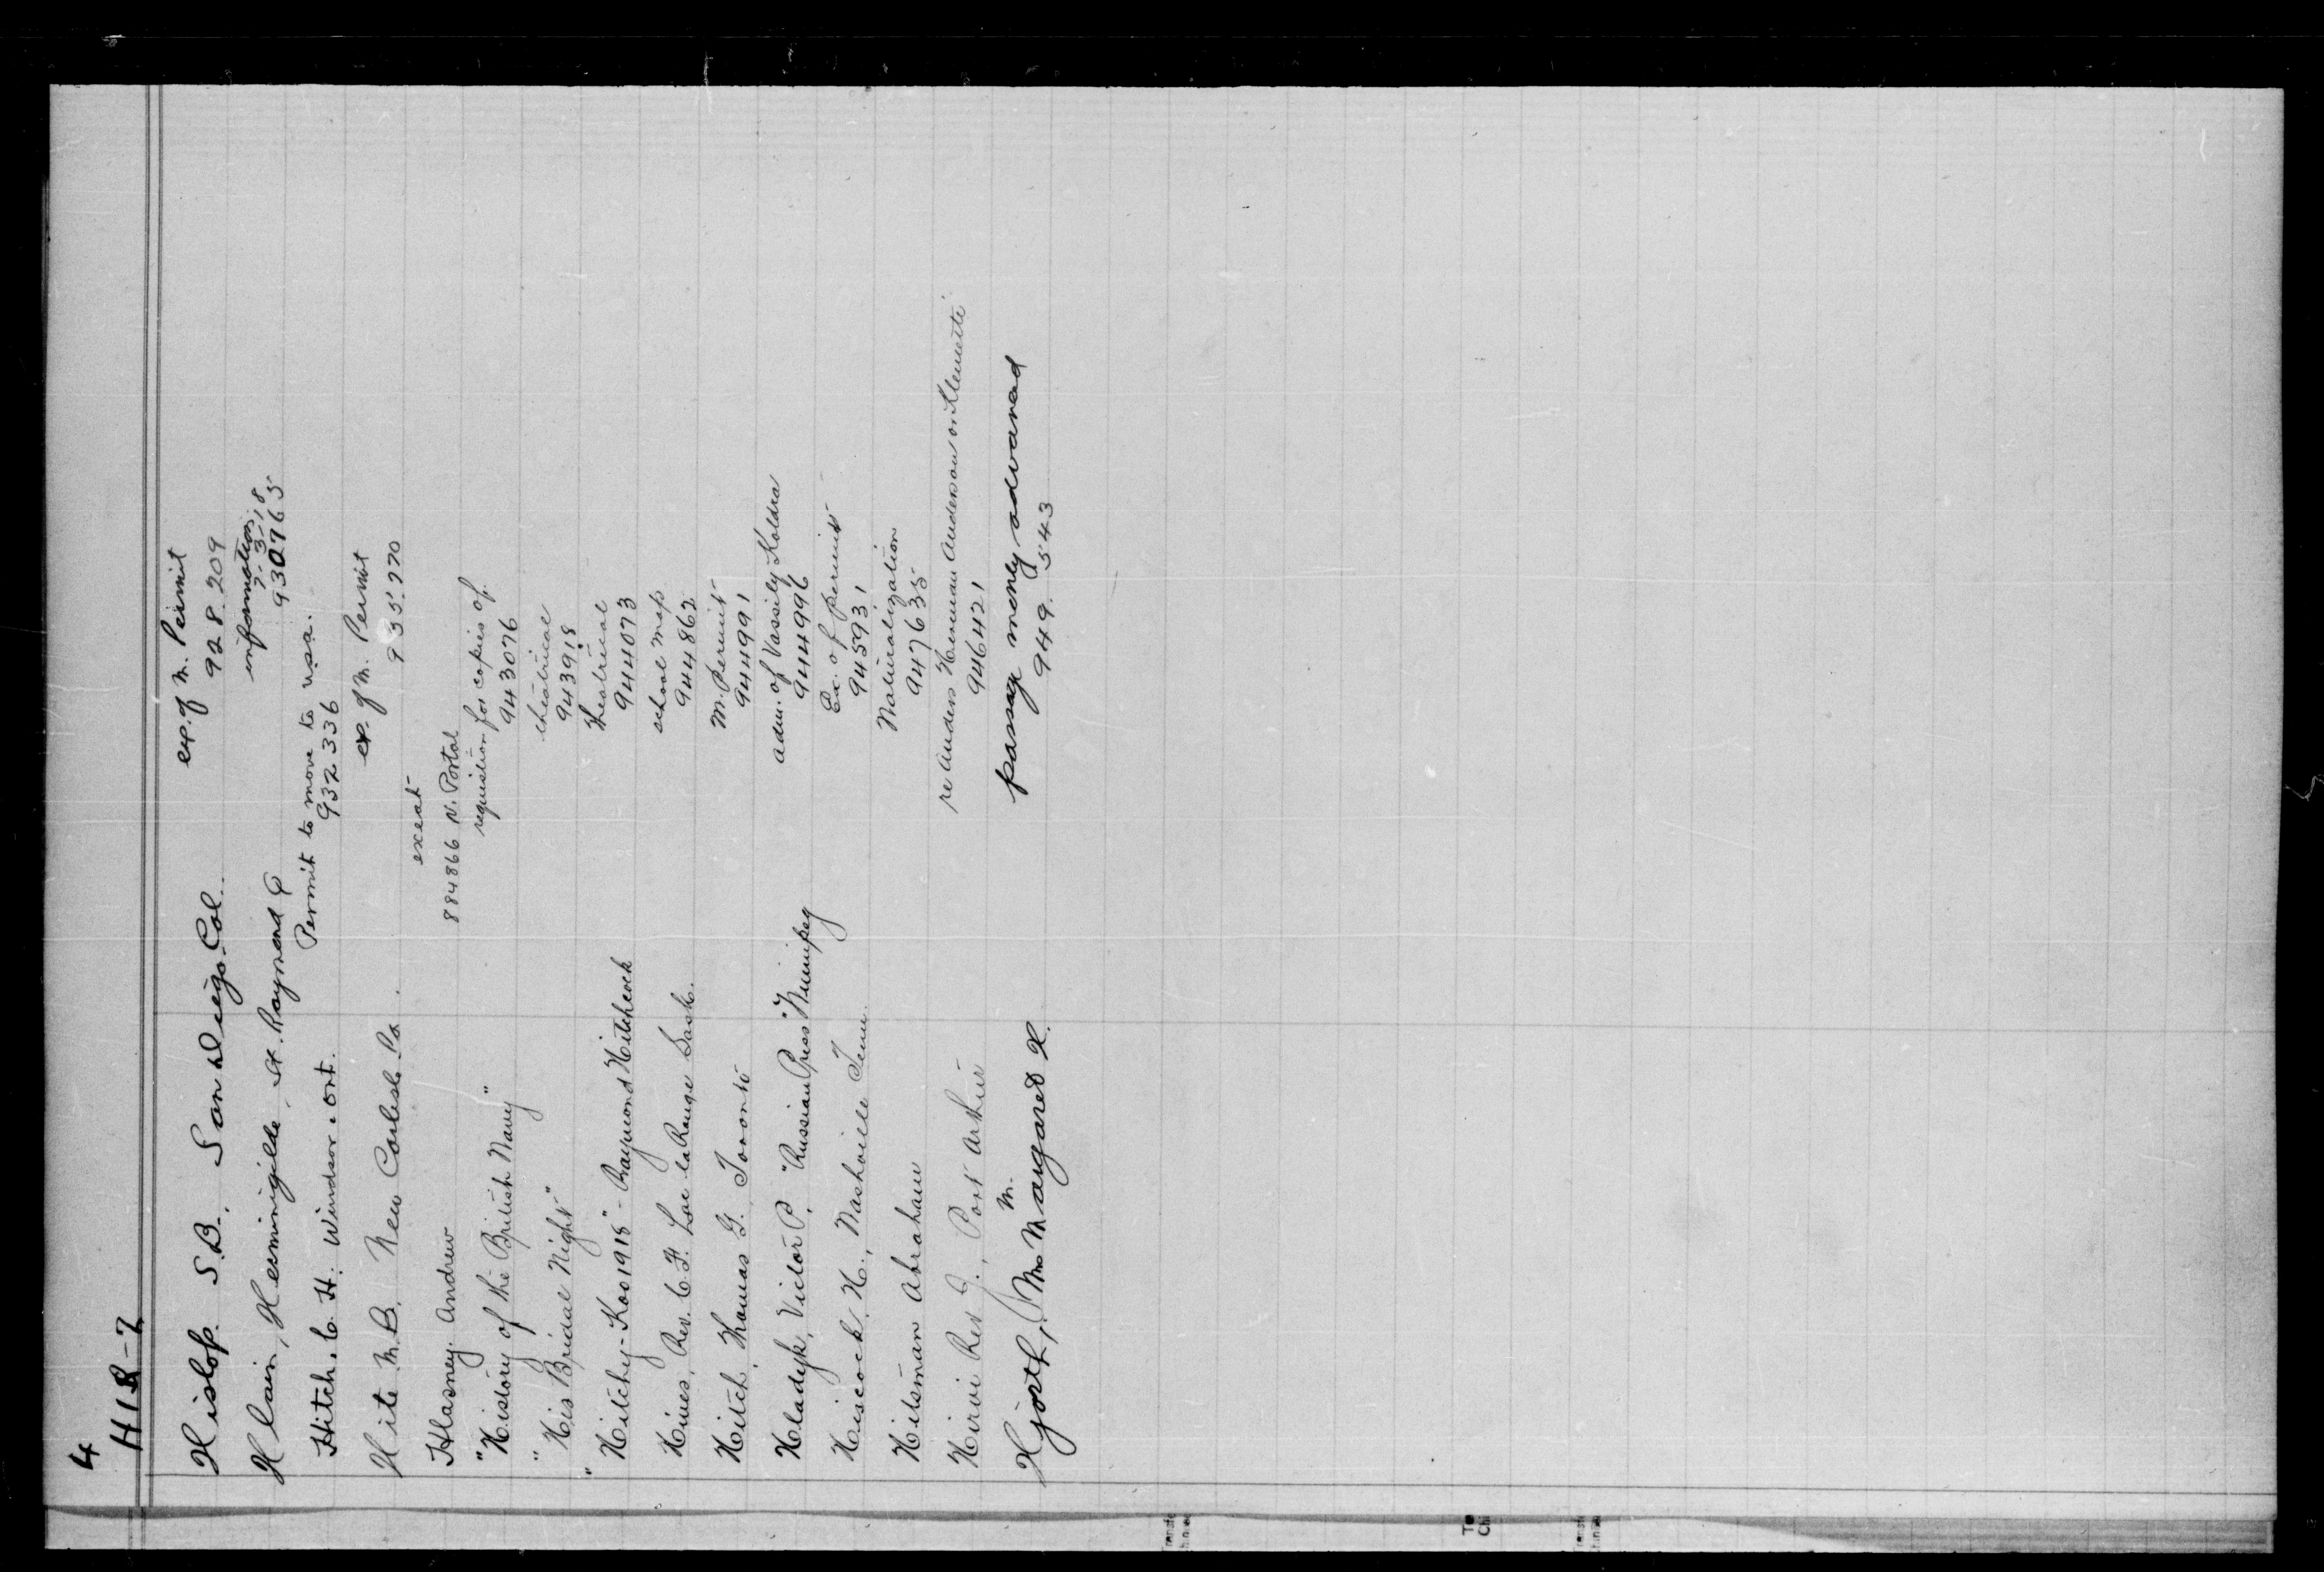 4
HIS-Z
Hislop. S.B., San Diego Col.
ex. of M. Permit
928.209
Hlain, Hermingilde, St. Raymond Q
information
7-3-18
930765
Hitch. C. H. Windsor. Ont.
Permit to move to usa.
932336
Hite M.B. New Carlisle Pa
ex. of M. Permit
935.770
Hlasney. Andrew
exeat
884866 N. Portal
"History of the British Navy"
requisition for copies of.
943076
"His Bridal Night"
theatrical
943918
"Hitchy-Koo 1918" - Raymond Hitchcock
theatrical
944073
Hives, Rev. C. F. Lac la Ronge Sask.
school map
944862
Hitch, Thomas G. Toronto
M. Permit
944991
Hladyk, Victor P. "Russian Press" Winnipeg
adm. of Vassily Koldra
944996
Hiscock, H., Nashville Tenn.
Ex. of permit
945931
Hitsman Abraham
Naturalization
947635
Hirvi Rev J., Port Arthur
re Anders Herman Anderson or Klemeti
946421
Hjorth, Mrs M. Margaret H.
passage money advanced
949.543
Transfe
To
Chi
Transfe